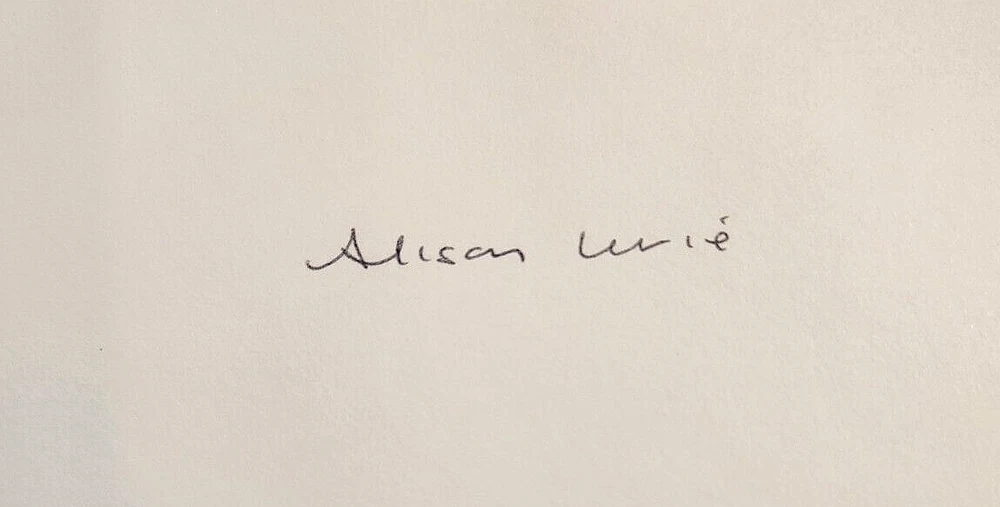 Alison Lurie